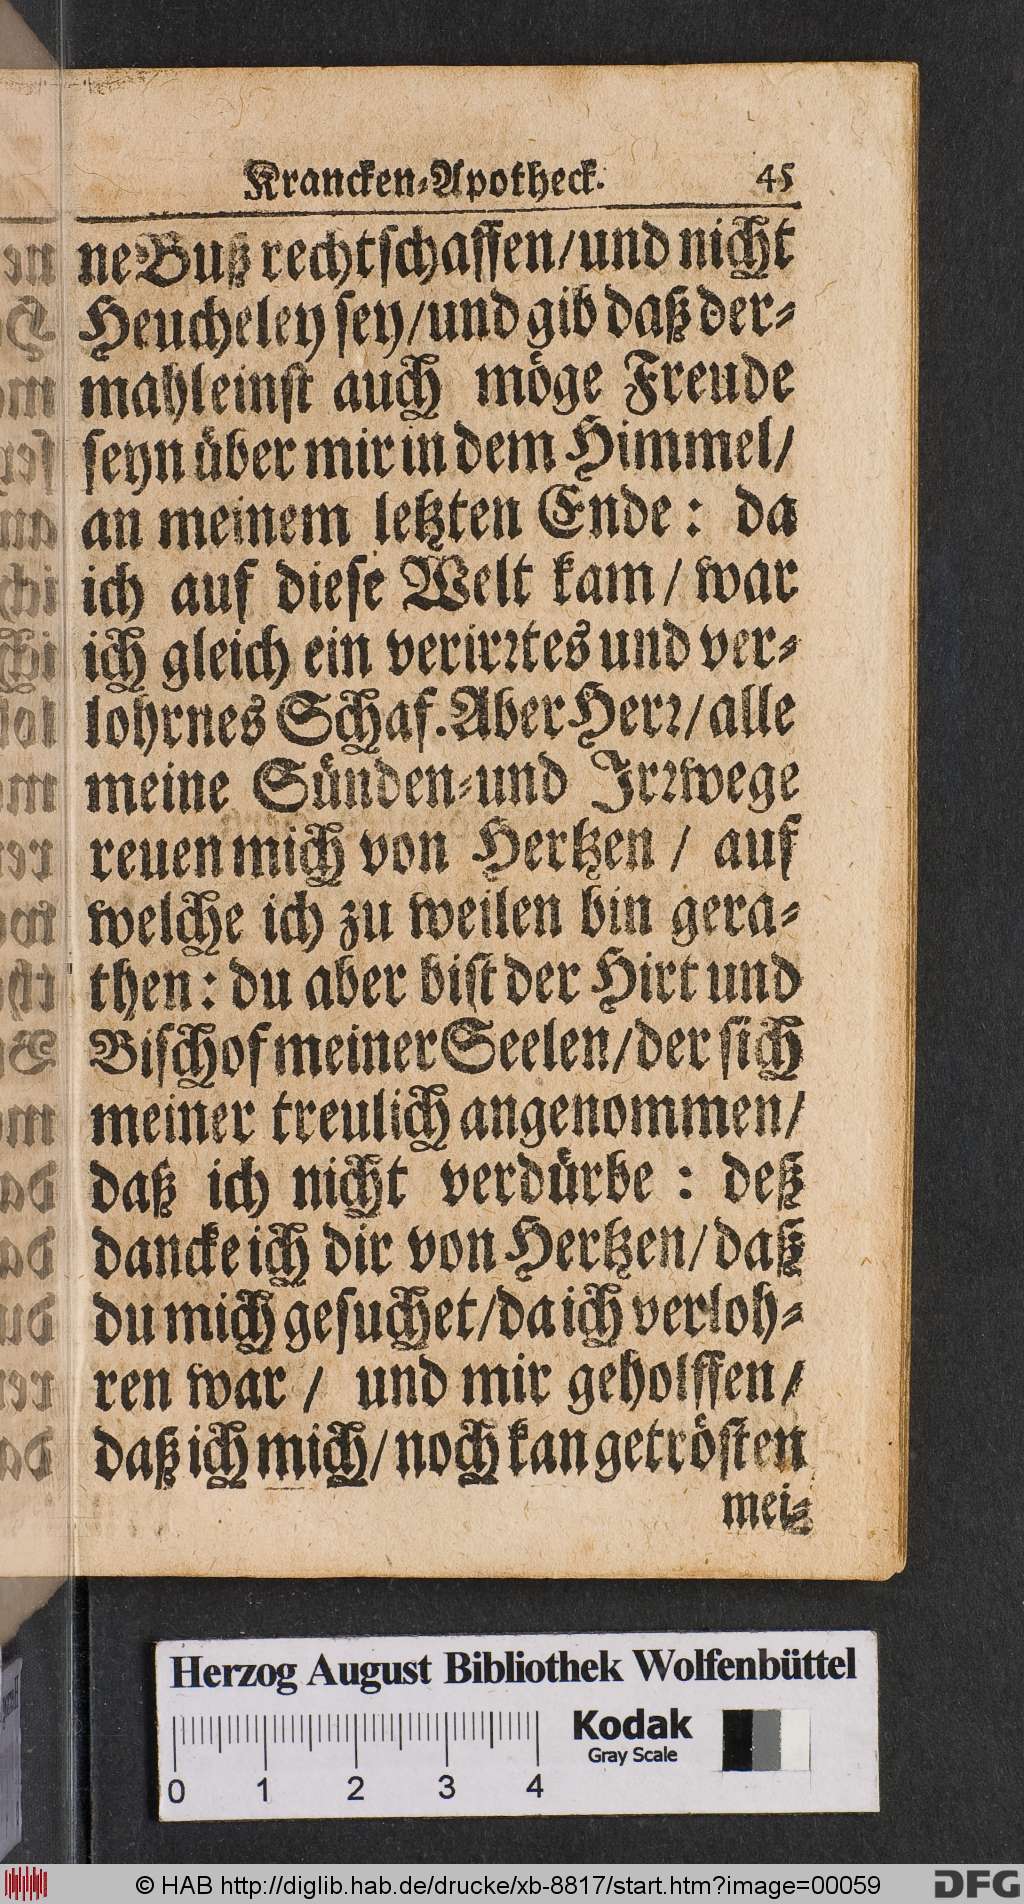 Krancken-Apotheck. 45
ne Buß rechtschaffen/und nicht
Heucheley sey/und gib daß der-
mahleinst auch möge Freude
seyn über mir in dem Himmel/
an meinem letzten Ende: da
ich auf diese Welt kam/ war
ich gleich ein verirꝛtes und ver-
lohrnes Schaf. Aber Herꝛ/alle
meine Sünden-und Jrꝛwege
reuen mich von Hertzen / auf
welche ich zu weilen bin gera-
then: du aber bist der Hirt und
Bischof meiner Seelen/der sich
meiner treulich angenommen/
daß ich nicht verdürbe : deß
dancke ich dir von Hertzen/daß
du mich gesuchet/da ich verloh-
ren war / und mir geholffen/
daß ich mich/noch kan getrösten
mei-
Herzog August Bibliothek Wolfenbüttel
Kodak
Gray Scale
0 1 2 3 4
© HAB http://diglib.hab.de/drucke/xb-8817/start.htm?image=00059
DFG